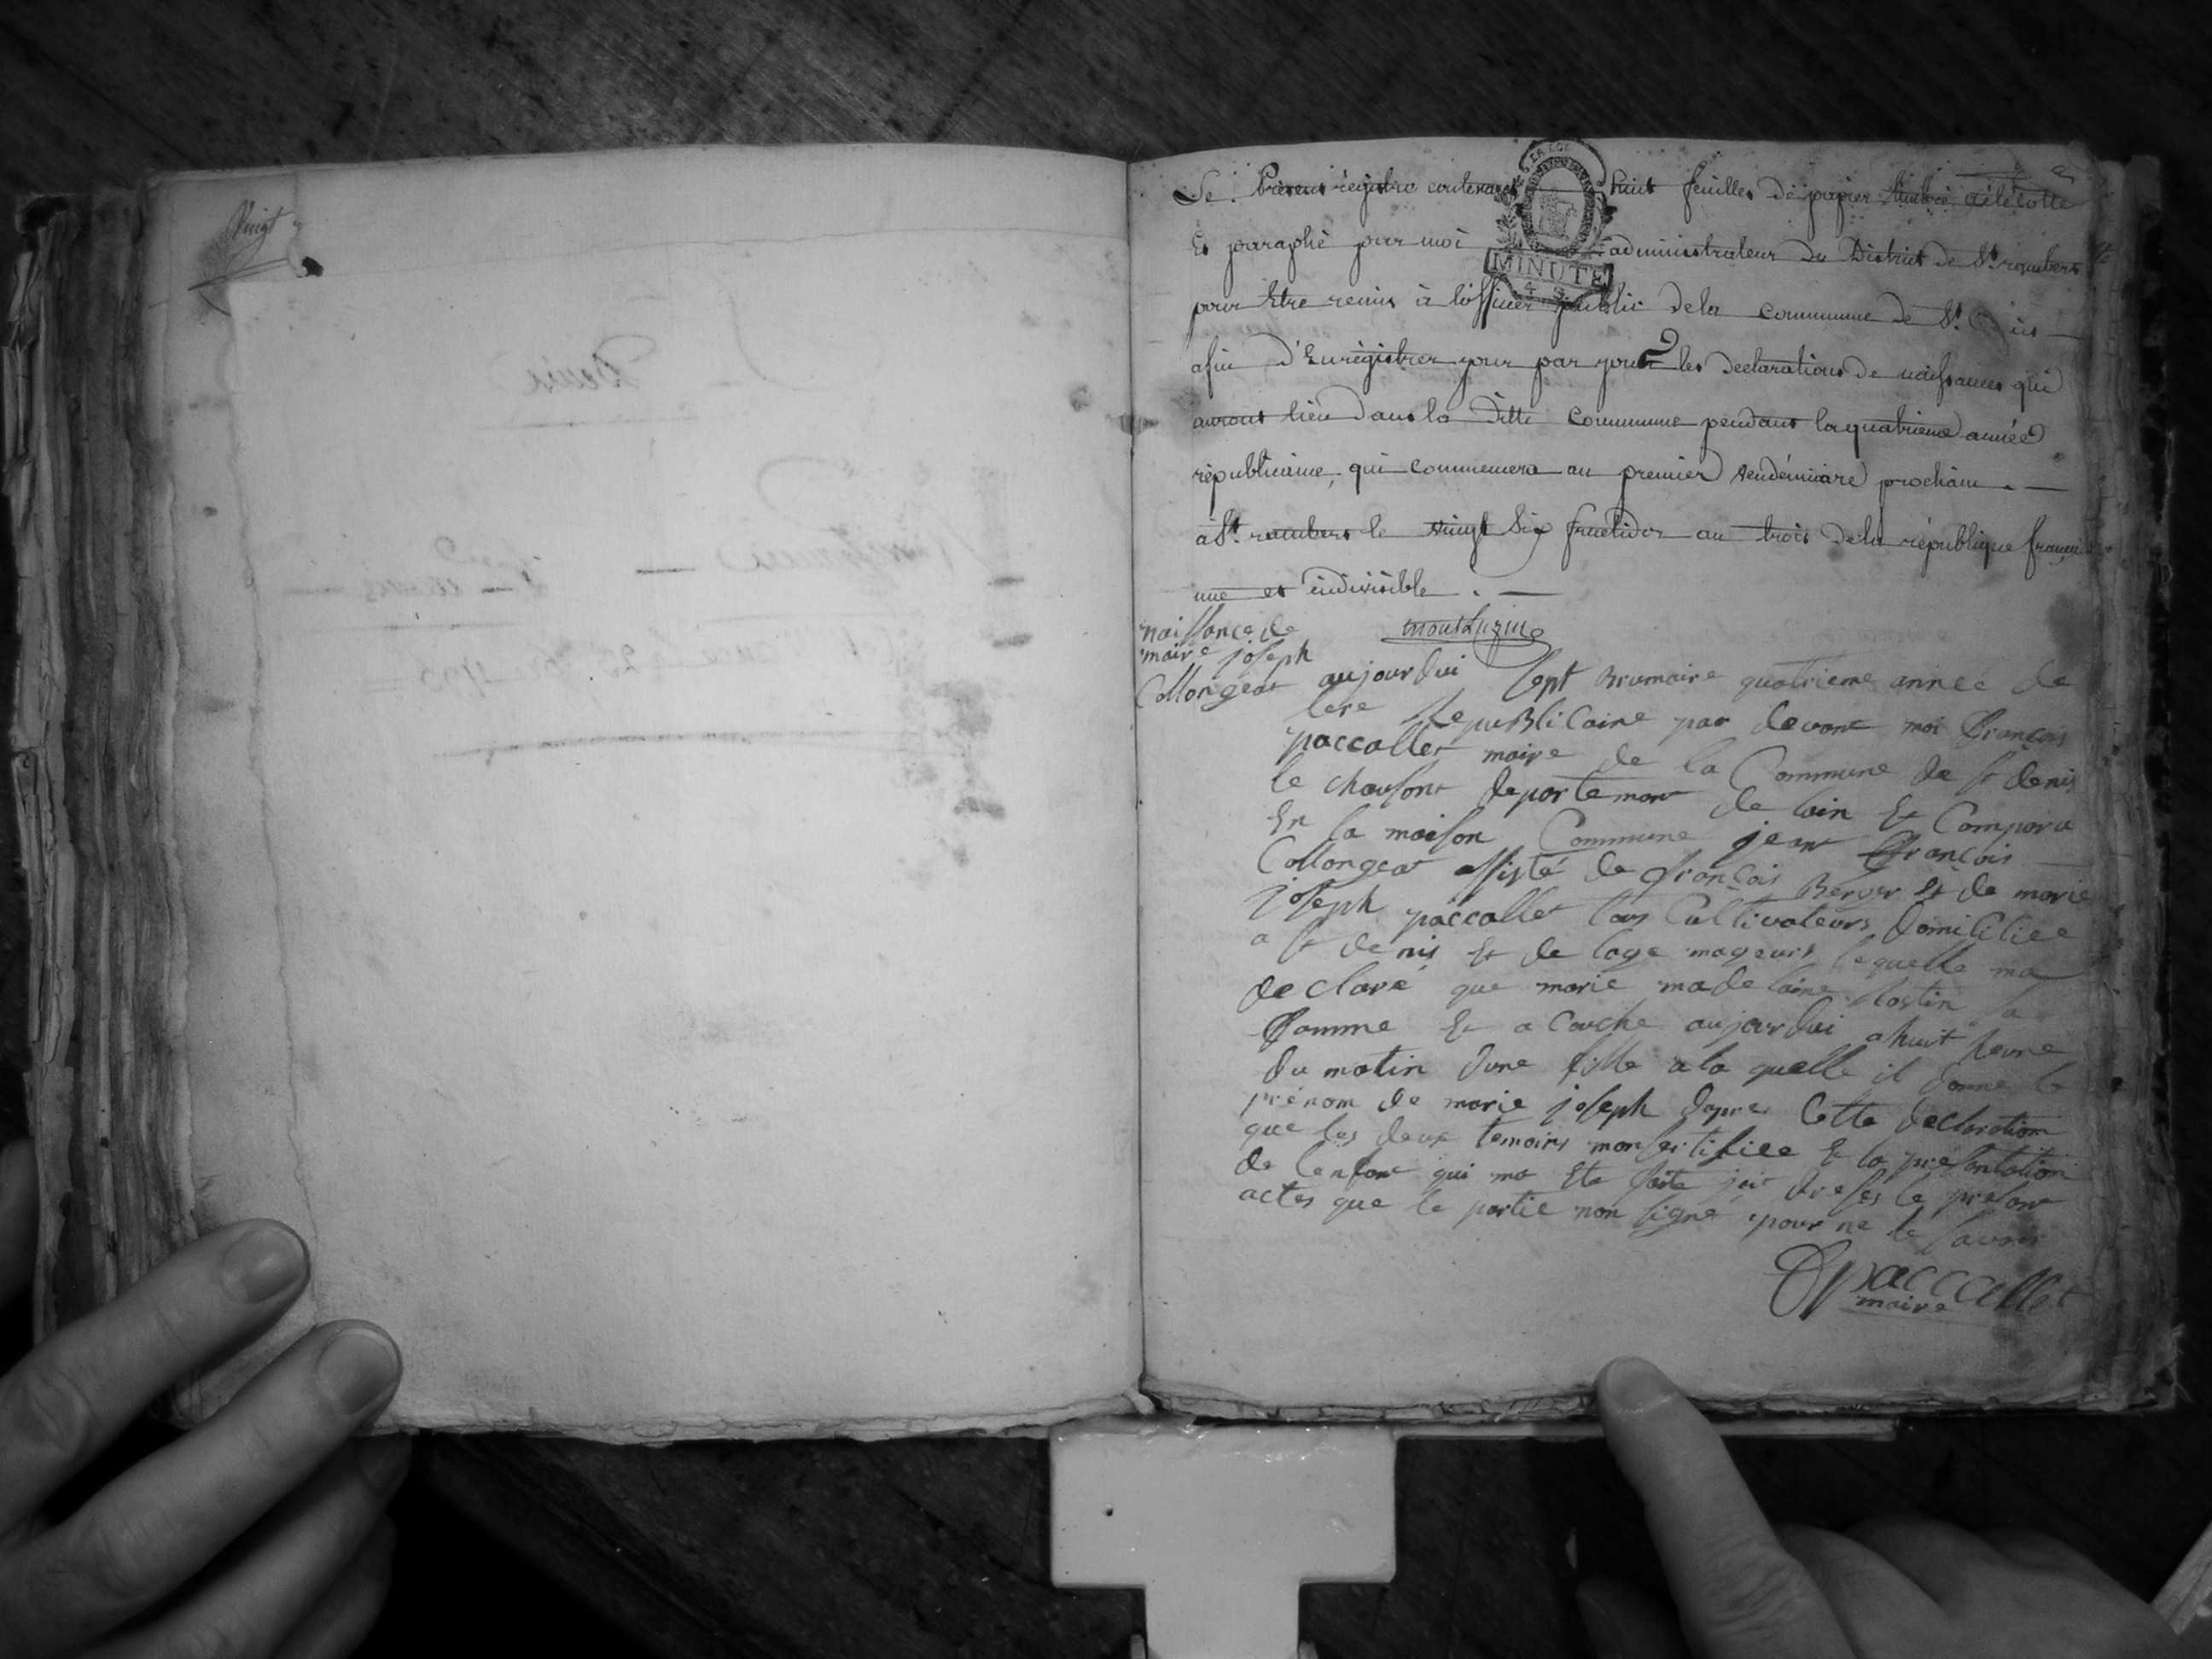 Vingt
Le Présent régistre contenant huit feuilles de papier timbré, a été cotté
Et paraphé par moi administrateur du District de St. rambert
pour Etre remis à l'officier public de la commune de St.
afin d'Enrégistrer jour par jour les declarations de naissances qui
auront lieu dans la ditte Commune pendant la quatrieme année
républicaine, qui commencera au premier vendémiaire prochain. —
à St. rambert le vingt Six fructidor an trois de la république française
une et indivisible. —
MINUTE
naissance de
marie joseph
Collongeat
aujourdui sept Brumaire quatrieme annee de
lere RepuBliCaine par devant moi François
paccallet maire de la Commune de St denis
le chauson departemant de lain Et Comparu
En la maison Commune jean François
Collongeat assisté de François Berger Et de marie
joseph paccallet tous Cultivateurs domiciliee
a St denis Et de lage mageurs lequelle ma
declaré que marie madelaine la
Famme Et a Couche aujourdui a huit heure
du matin dune fille a la quelle il donne le
prénom de marie joseph dapres Cette declaration
que les deux temoins mon sertifiee & la presantation
de lenfant qui ma Ete faite jai dresés le presant
actes que le partie non signé pour ne le savoir
paccallet
maire